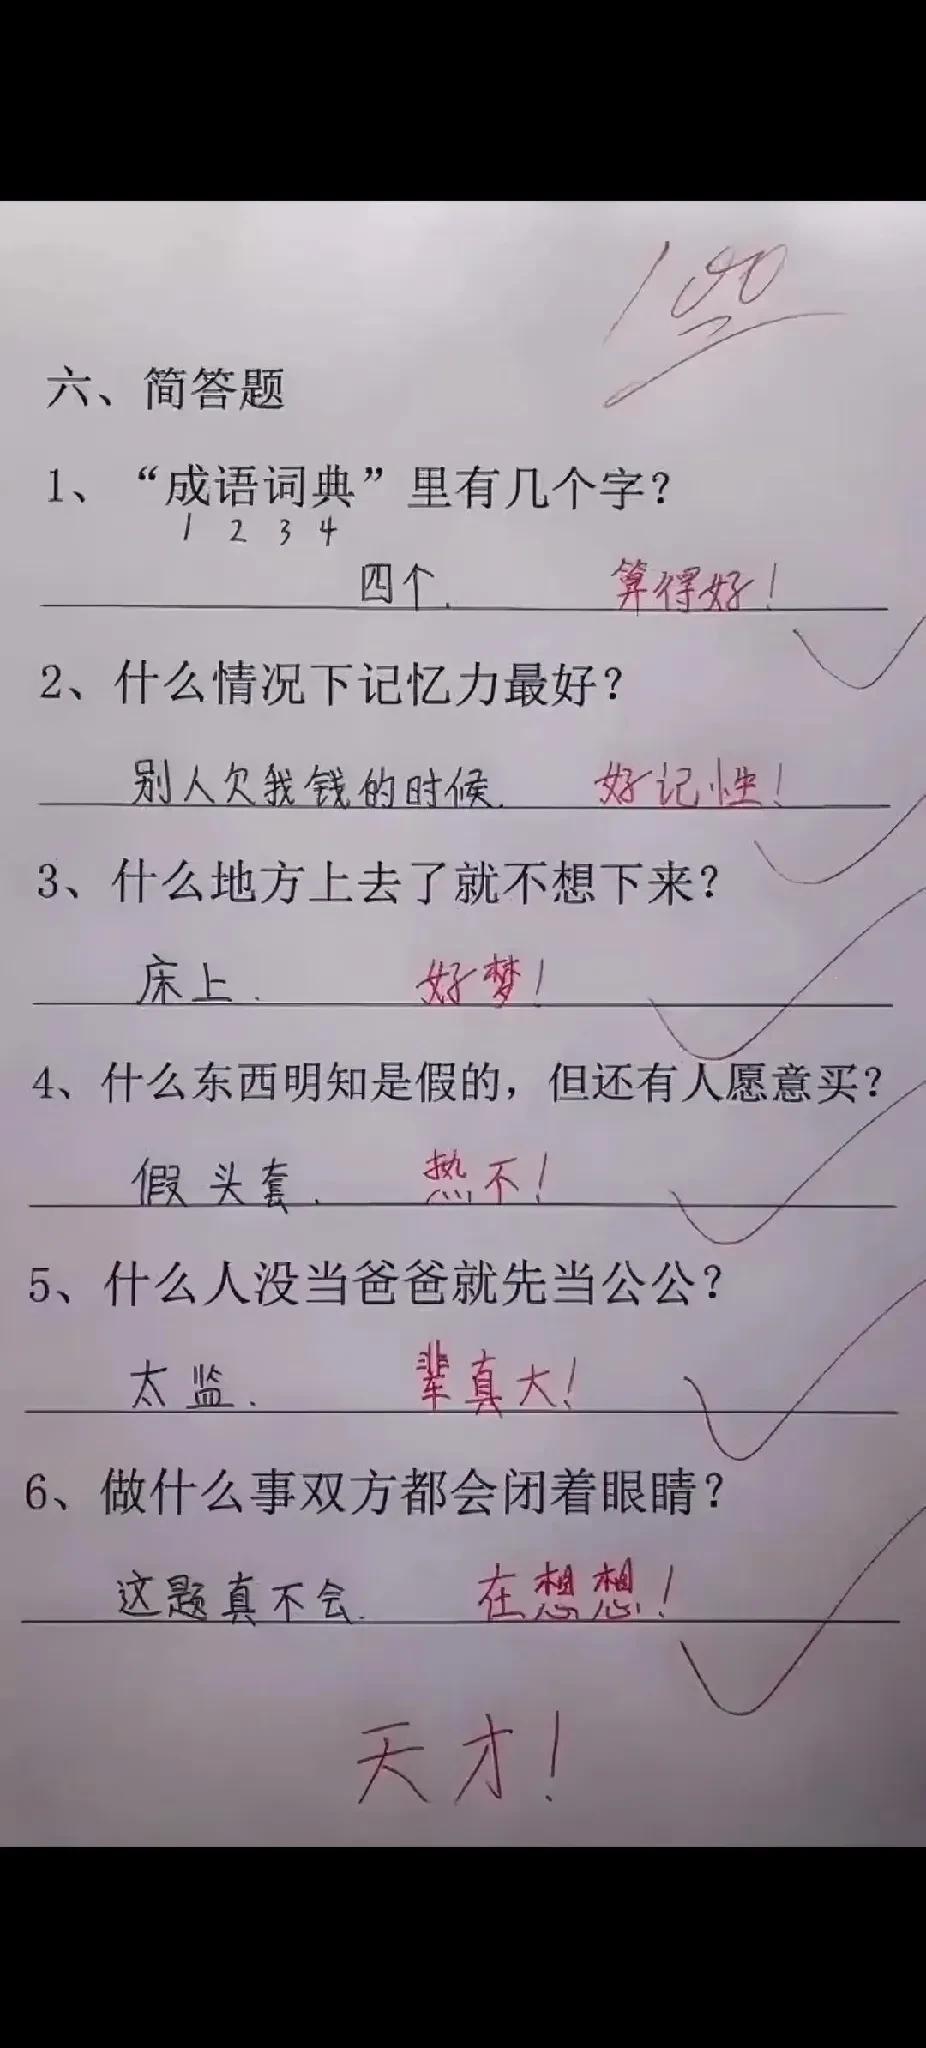 100
六、简答题
1、“成语词典”里有几个字？
1 2 3 4
四个. 算得好！
2、什么情况下记忆力最好？
别人欠我钱的时候. 好记性！
3、什么地方上去了就不想下来？
床上. 好梦！
4、什么东西明知是假的，但还有人愿意买？
假头套. 热不！
5、什么人没当爸爸就先当公公？
太监. 辈真大！
6、做什么事双方都会闭着眼睛？
这题真不会. 在想想！
天才！